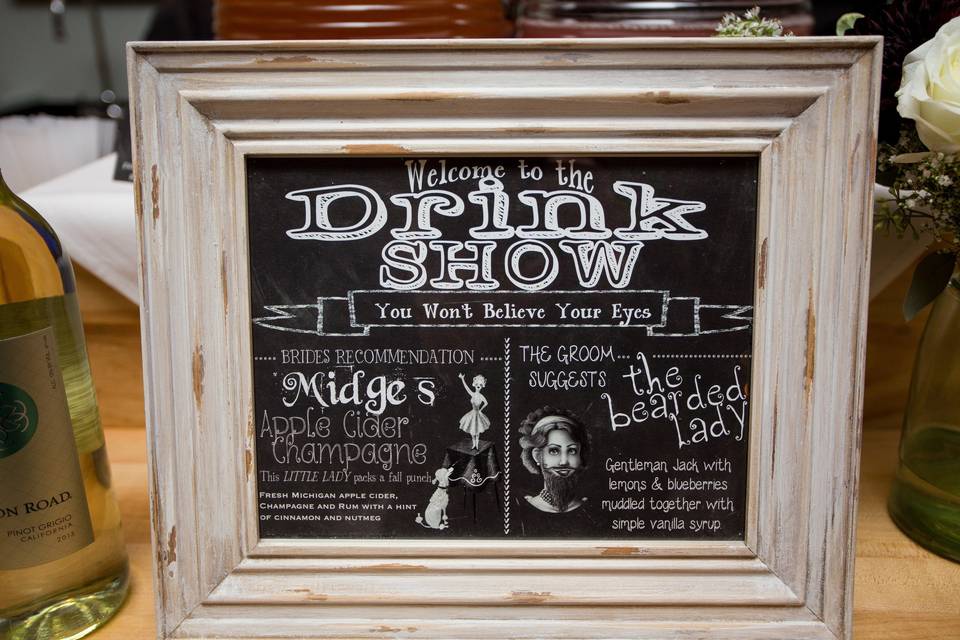 Welcome to the
Drink
SHOW
You Won't Believe Your Eyes
BRIDES RECOMMENDATION
Midge's
Apple Cider
Champagne
This LITTLE LADY packs a fall punch
FRESH MICHIGAN APPLE CIDER,
CHAMPAGNE AND RUM WITH A HINT
OF CINNAMON AND NUTMEG
THE GROOM
SUGGESTS
the
bearded
lady
Gentleman Jack with
lemons & blueberries
muddled together with
simple vanilla syrup.
ON ROAD
PINOT GRIGIO
CALIFORNIA
2013